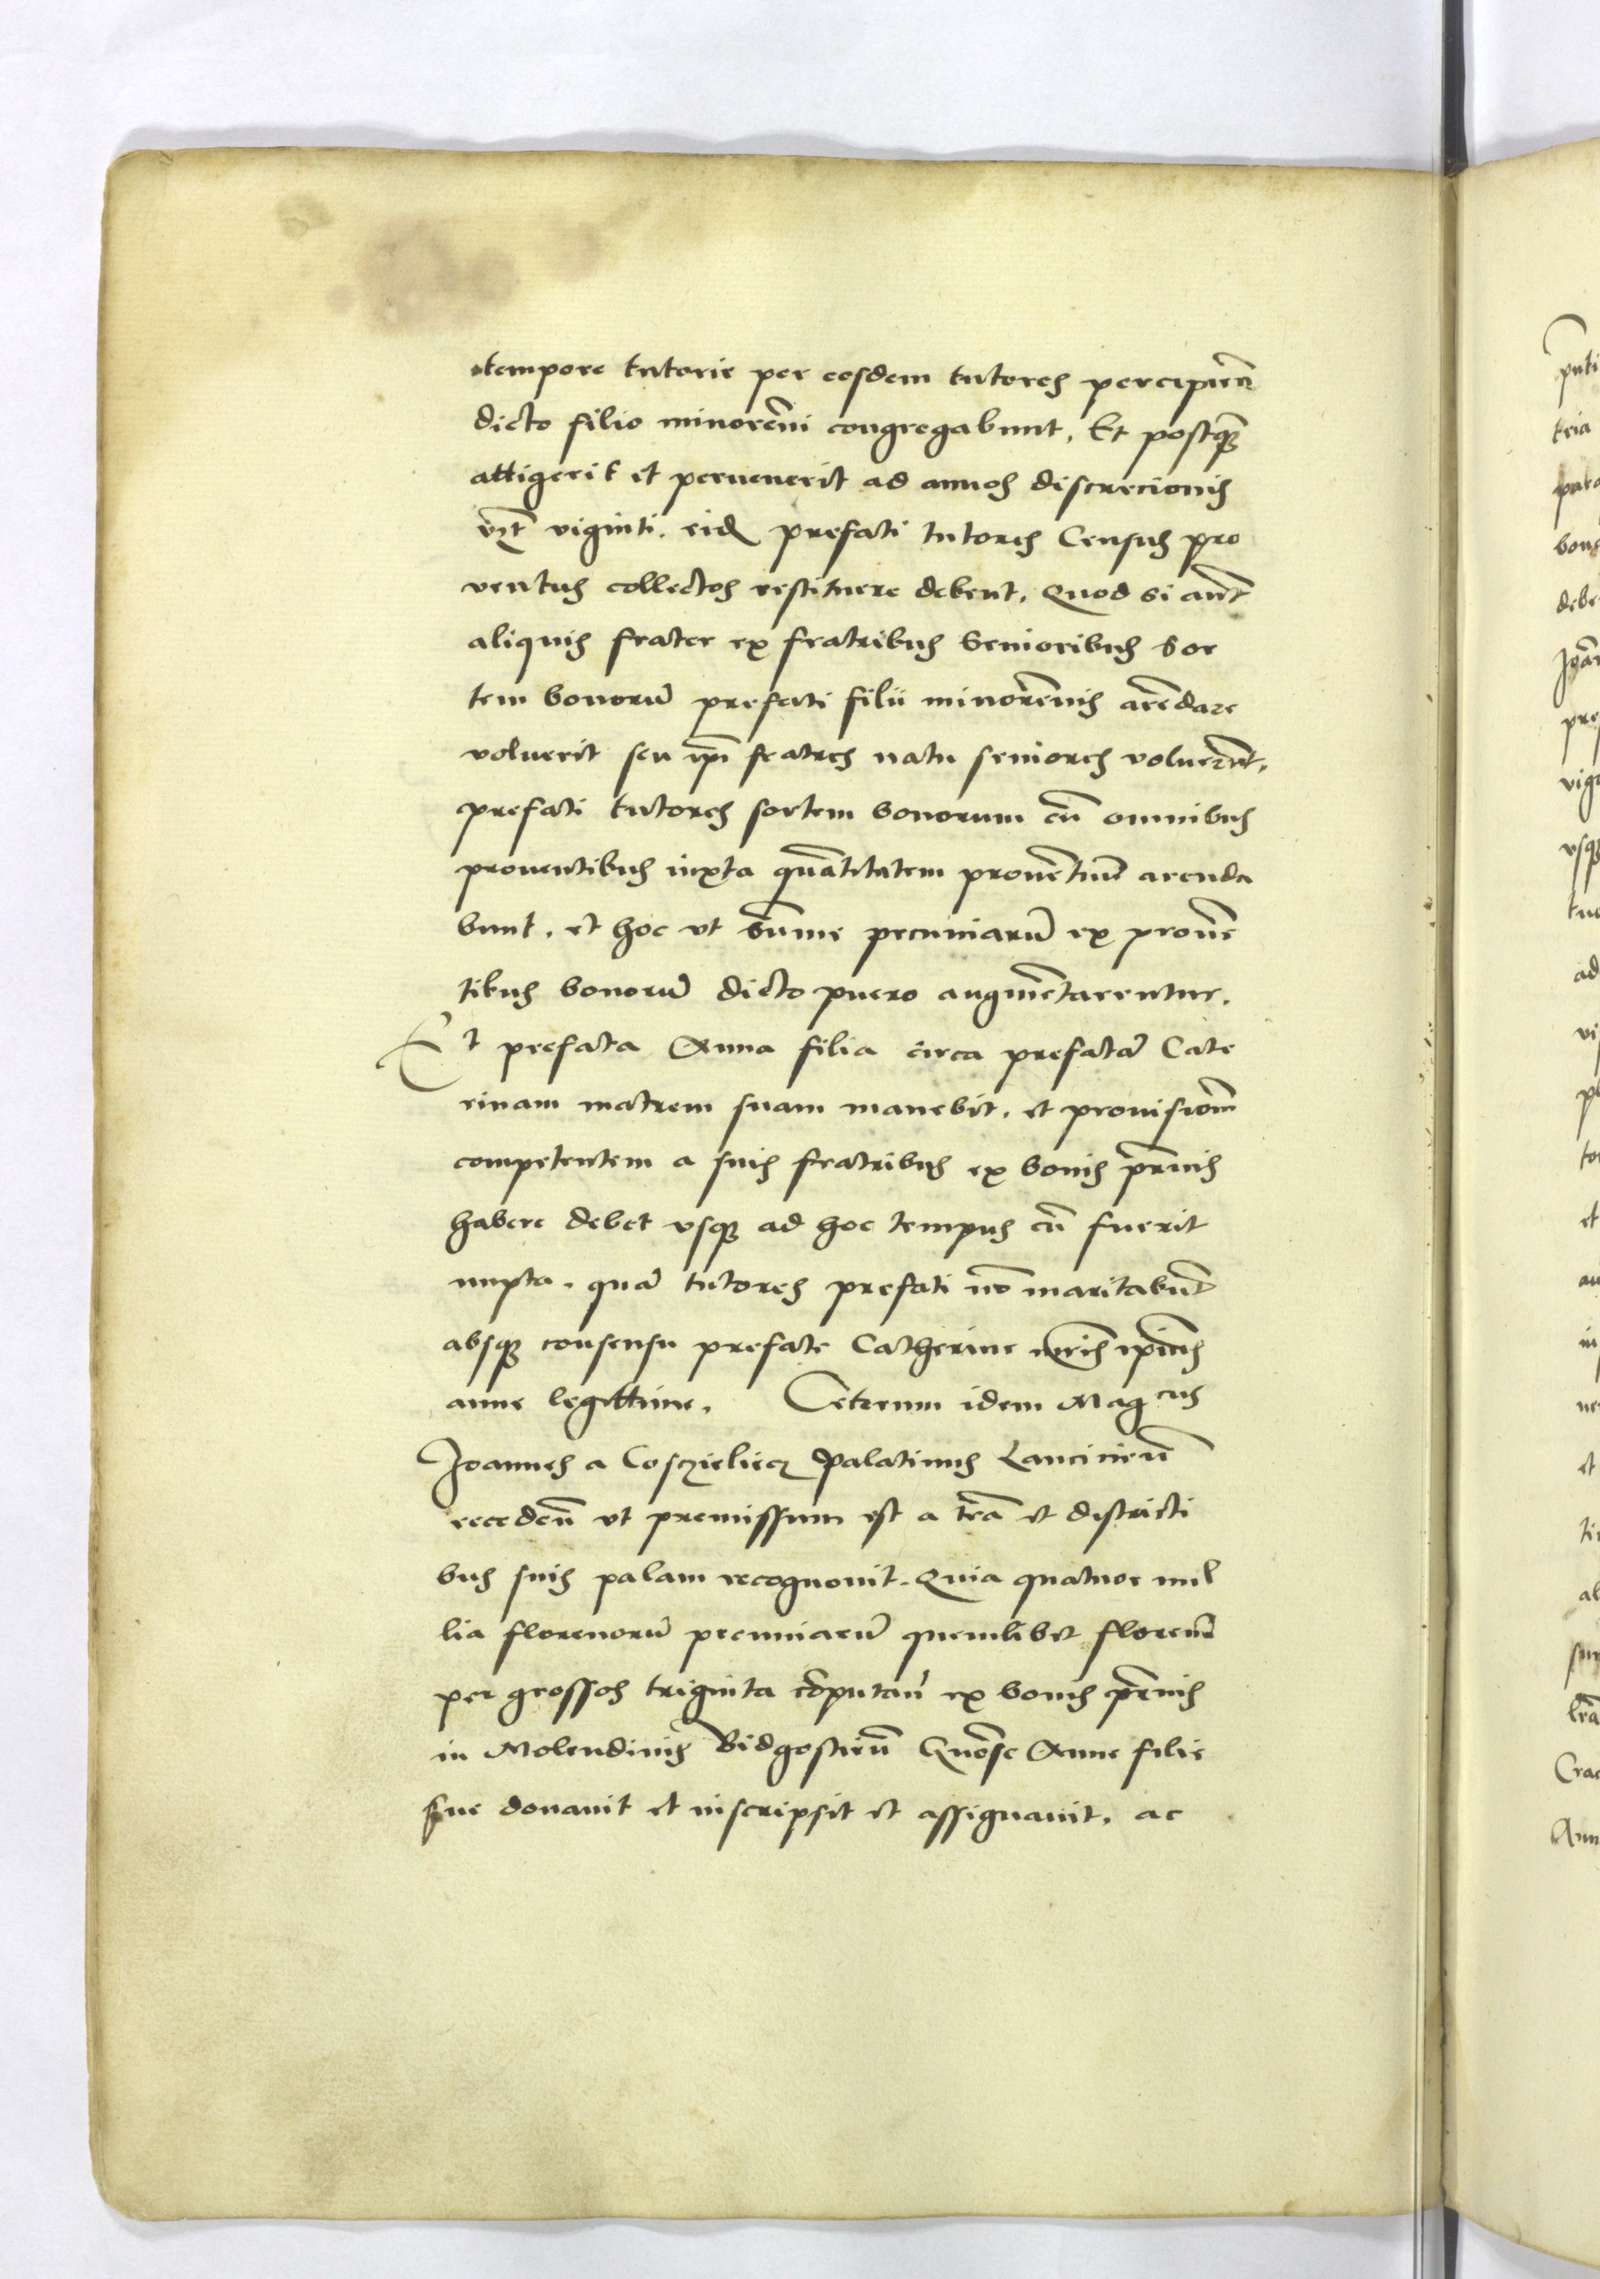 tempore tutorie per eosdem tutores percipien̄
dicto filio minorēni congregabunt. Et postqꝫ
attigerit et peruenerit ad annos discrecionis
vꝫt viginti. eidꝫ prefati tutores Census pro
uentus collectos restituere debent. Quod si aut̄
aliquis frater ex fratribus Senioribus Sor
tem bonorū prefati filii minorēnis arēdare
voluerit seu ip̄i fratres natu seniores voluerīt.
prefati tutores sortem bonorum cū omnibus
prouentibus iuxta quātitatem prouētuū arenda
bunt. et hoc vt Sūme pecuniarū ex prouē
tibus bonorū dicto puero augmētarentur.
Et prefata Anna filia circa prefatā Cate
rinam matrem suam manebit. et prouisioēm
competentem a suis fratribus ex bonis pr̄nis
habere debet vsqꝫ ad hoc tempus cū fuerit
nupta. quā tutores prefati nō maritabūt
absqꝫ consensu prefate Catherine mr̄is ip̄ius
anne legittime. Ceterum idem Magcus
Joannes a Coszcieliecz Palatinus Lancicieñ
recedeñ vt premissum est a tr̄a et districti
bus suis palam recognouit. Quia quatuor mil
lia florenorū pecuniarū quemlibet florenū
per grossos triginta cōputan̄ ex bonis pr̄nis
in Molendinis Bidgostieñ Gnōse Anne filie
sue donauit et inscripsit et assignauit. ac
pn̄ti
tria
bonis
debe
Joān
pre
vig
vsqꝫ
tu
ad
vi
et
in
et
al
tr̄a
Crac
Ann